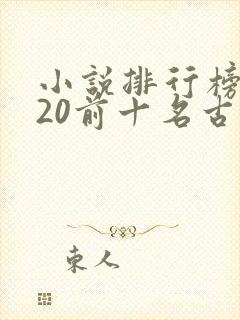 小說排行榜
20前十名古
東人